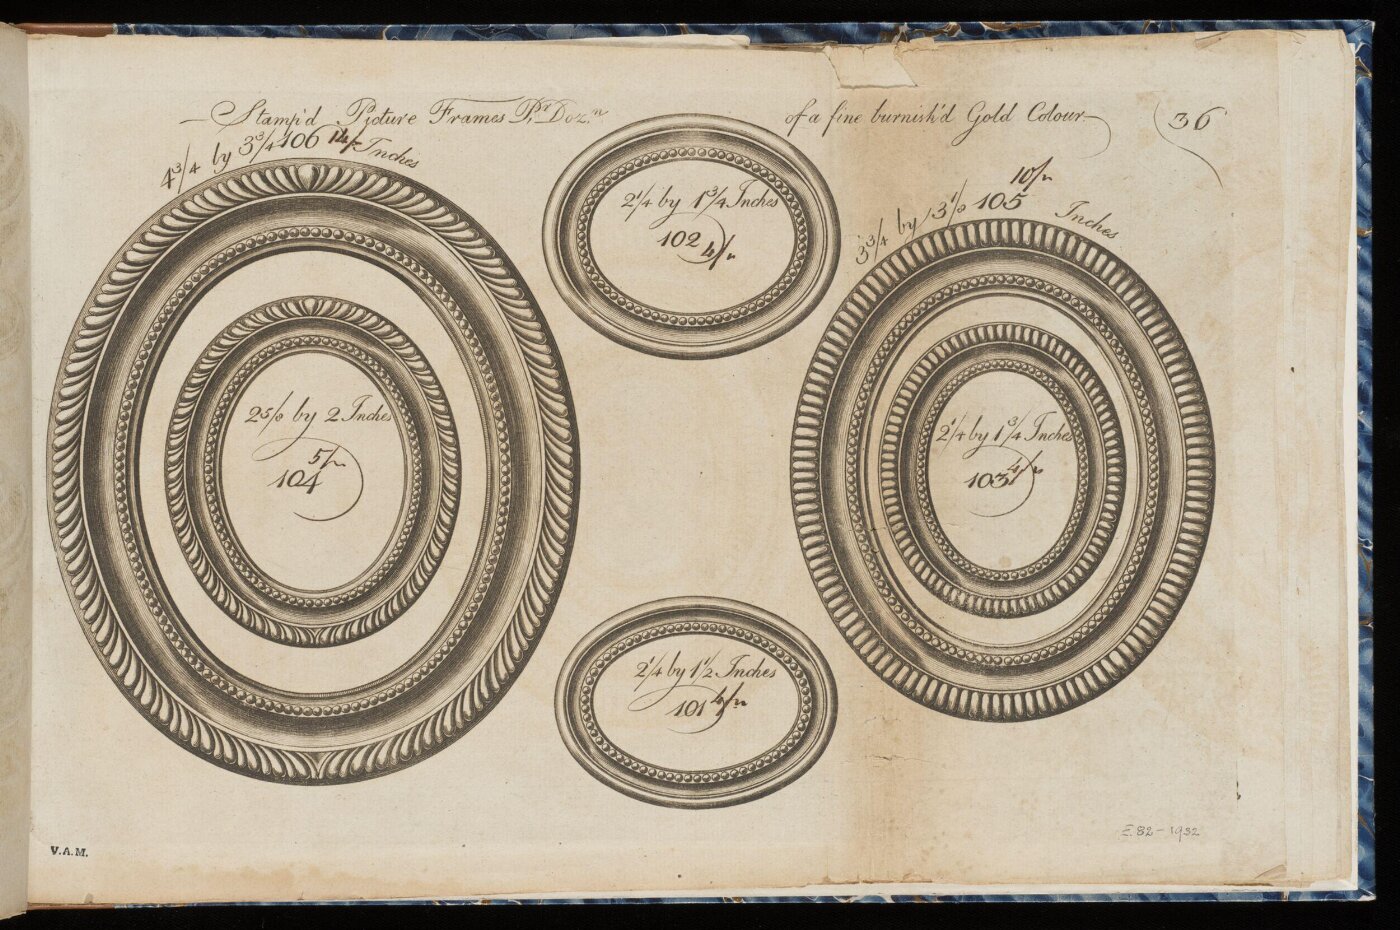 Stamp'd Picture Frames Pr. Dozn. of a fine burnish'd Gold Colour
36
4 3/4 by 3 3/4 106 14/- Inches
2 1/4 by 1 3/4 Inches
102 4/-
10/-
3 3/4 by 3 1/8 105 Inches
2 5/8 by 2 Inches
5/-
104
2 1/4 by 1 3/4 Inches
103 4/-
2 1/4 by 1 1/2 Inches
101 4/-
E.82-1932
V.A.M.